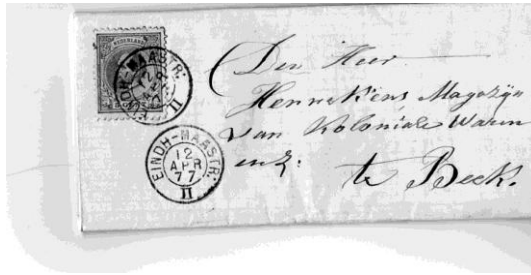 NEDERLAND
EINDH-MAASTR:
12
APR
77
II
EINDH-MAASTR:
12
APR
77
II
Den Heer
Hennekens Magazijn
van Koloniale Waren
enz:
te Beek.